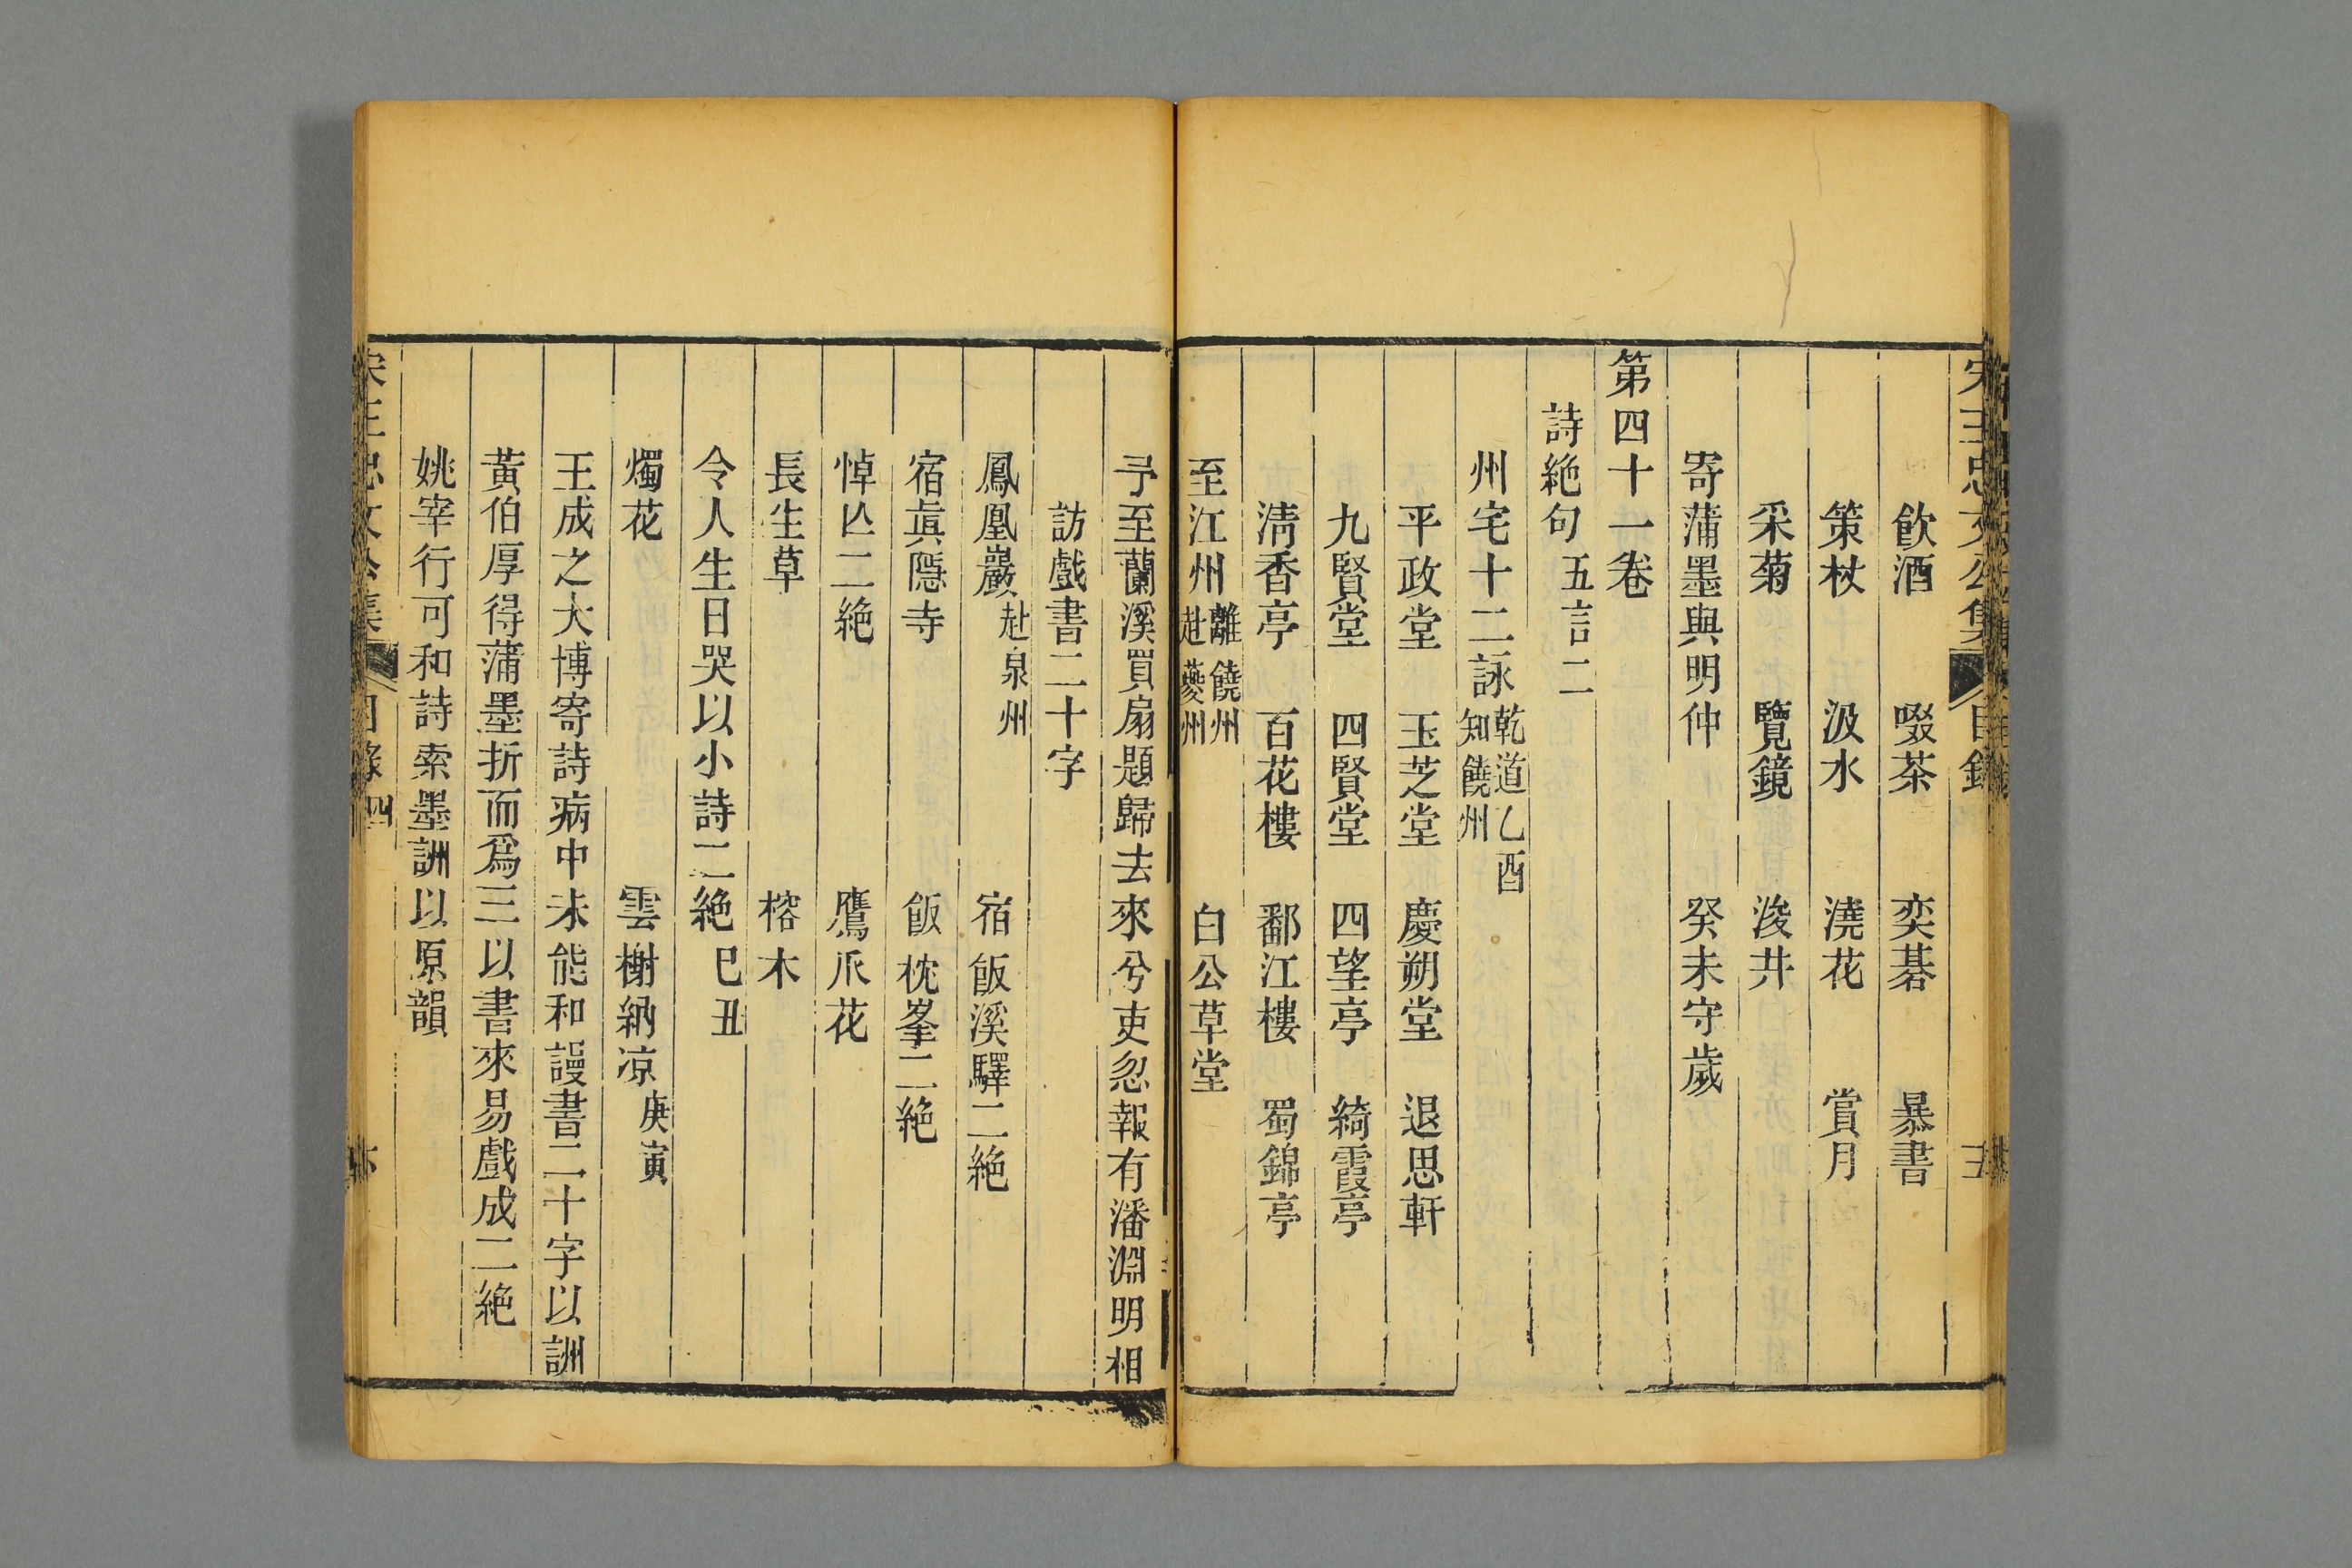 飲酒 啜茶 奕碁 暴書
策杖 汲水 澆花 賞月
采菊 覽鏡 浚井
寄蒲墨與明仲 癸未守歲
第四十一卷
詩絶句五言二
州宅十二詠乾道乙酉知饒州
平政堂 玉芝堂 慶朔堂 退思軒
九賢堂 四賢堂 四望亭 綺霞亭
清香亭 百花樓 鄱江樓 蜀錦亭
至江州離饒州赴夔州 白公草堂
予至蘭溪買扇題歸去來兮吏忽報有潘淵明相
訪戲書二十字
鳳凰巖赴泉州 宿飯溪驛二絶
宿眞隱寺 飯枕峯二絶
悼亾二絶 鷹爪花
長生草 榕木
令人生日哭以小詩二絶巳丑
燭花 雲榭納凉庚寅
王成之大博寄詩病中未能和謾書二十字以詶
黃伯厚得蒲墨折而爲三以書來易戲成二絶
姚宰行可和詩索墨詶以原韻
宋王忠文公集 目錄四